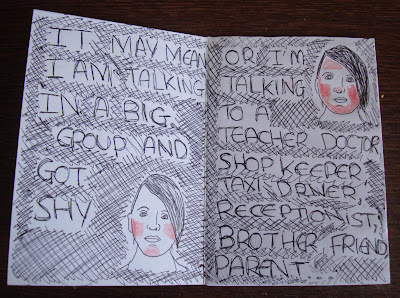 IT MAY MEAN
I AM TALKING
IN A BIG
GROUP AND
GOT
SHY
OR I'M
TALKING
TO A
TEACHER DOCTOR
SHOP KEEPER,
TAXI DRIVER,
RECEPTIONIST,
BROTHER FRIEND
PARENT ....